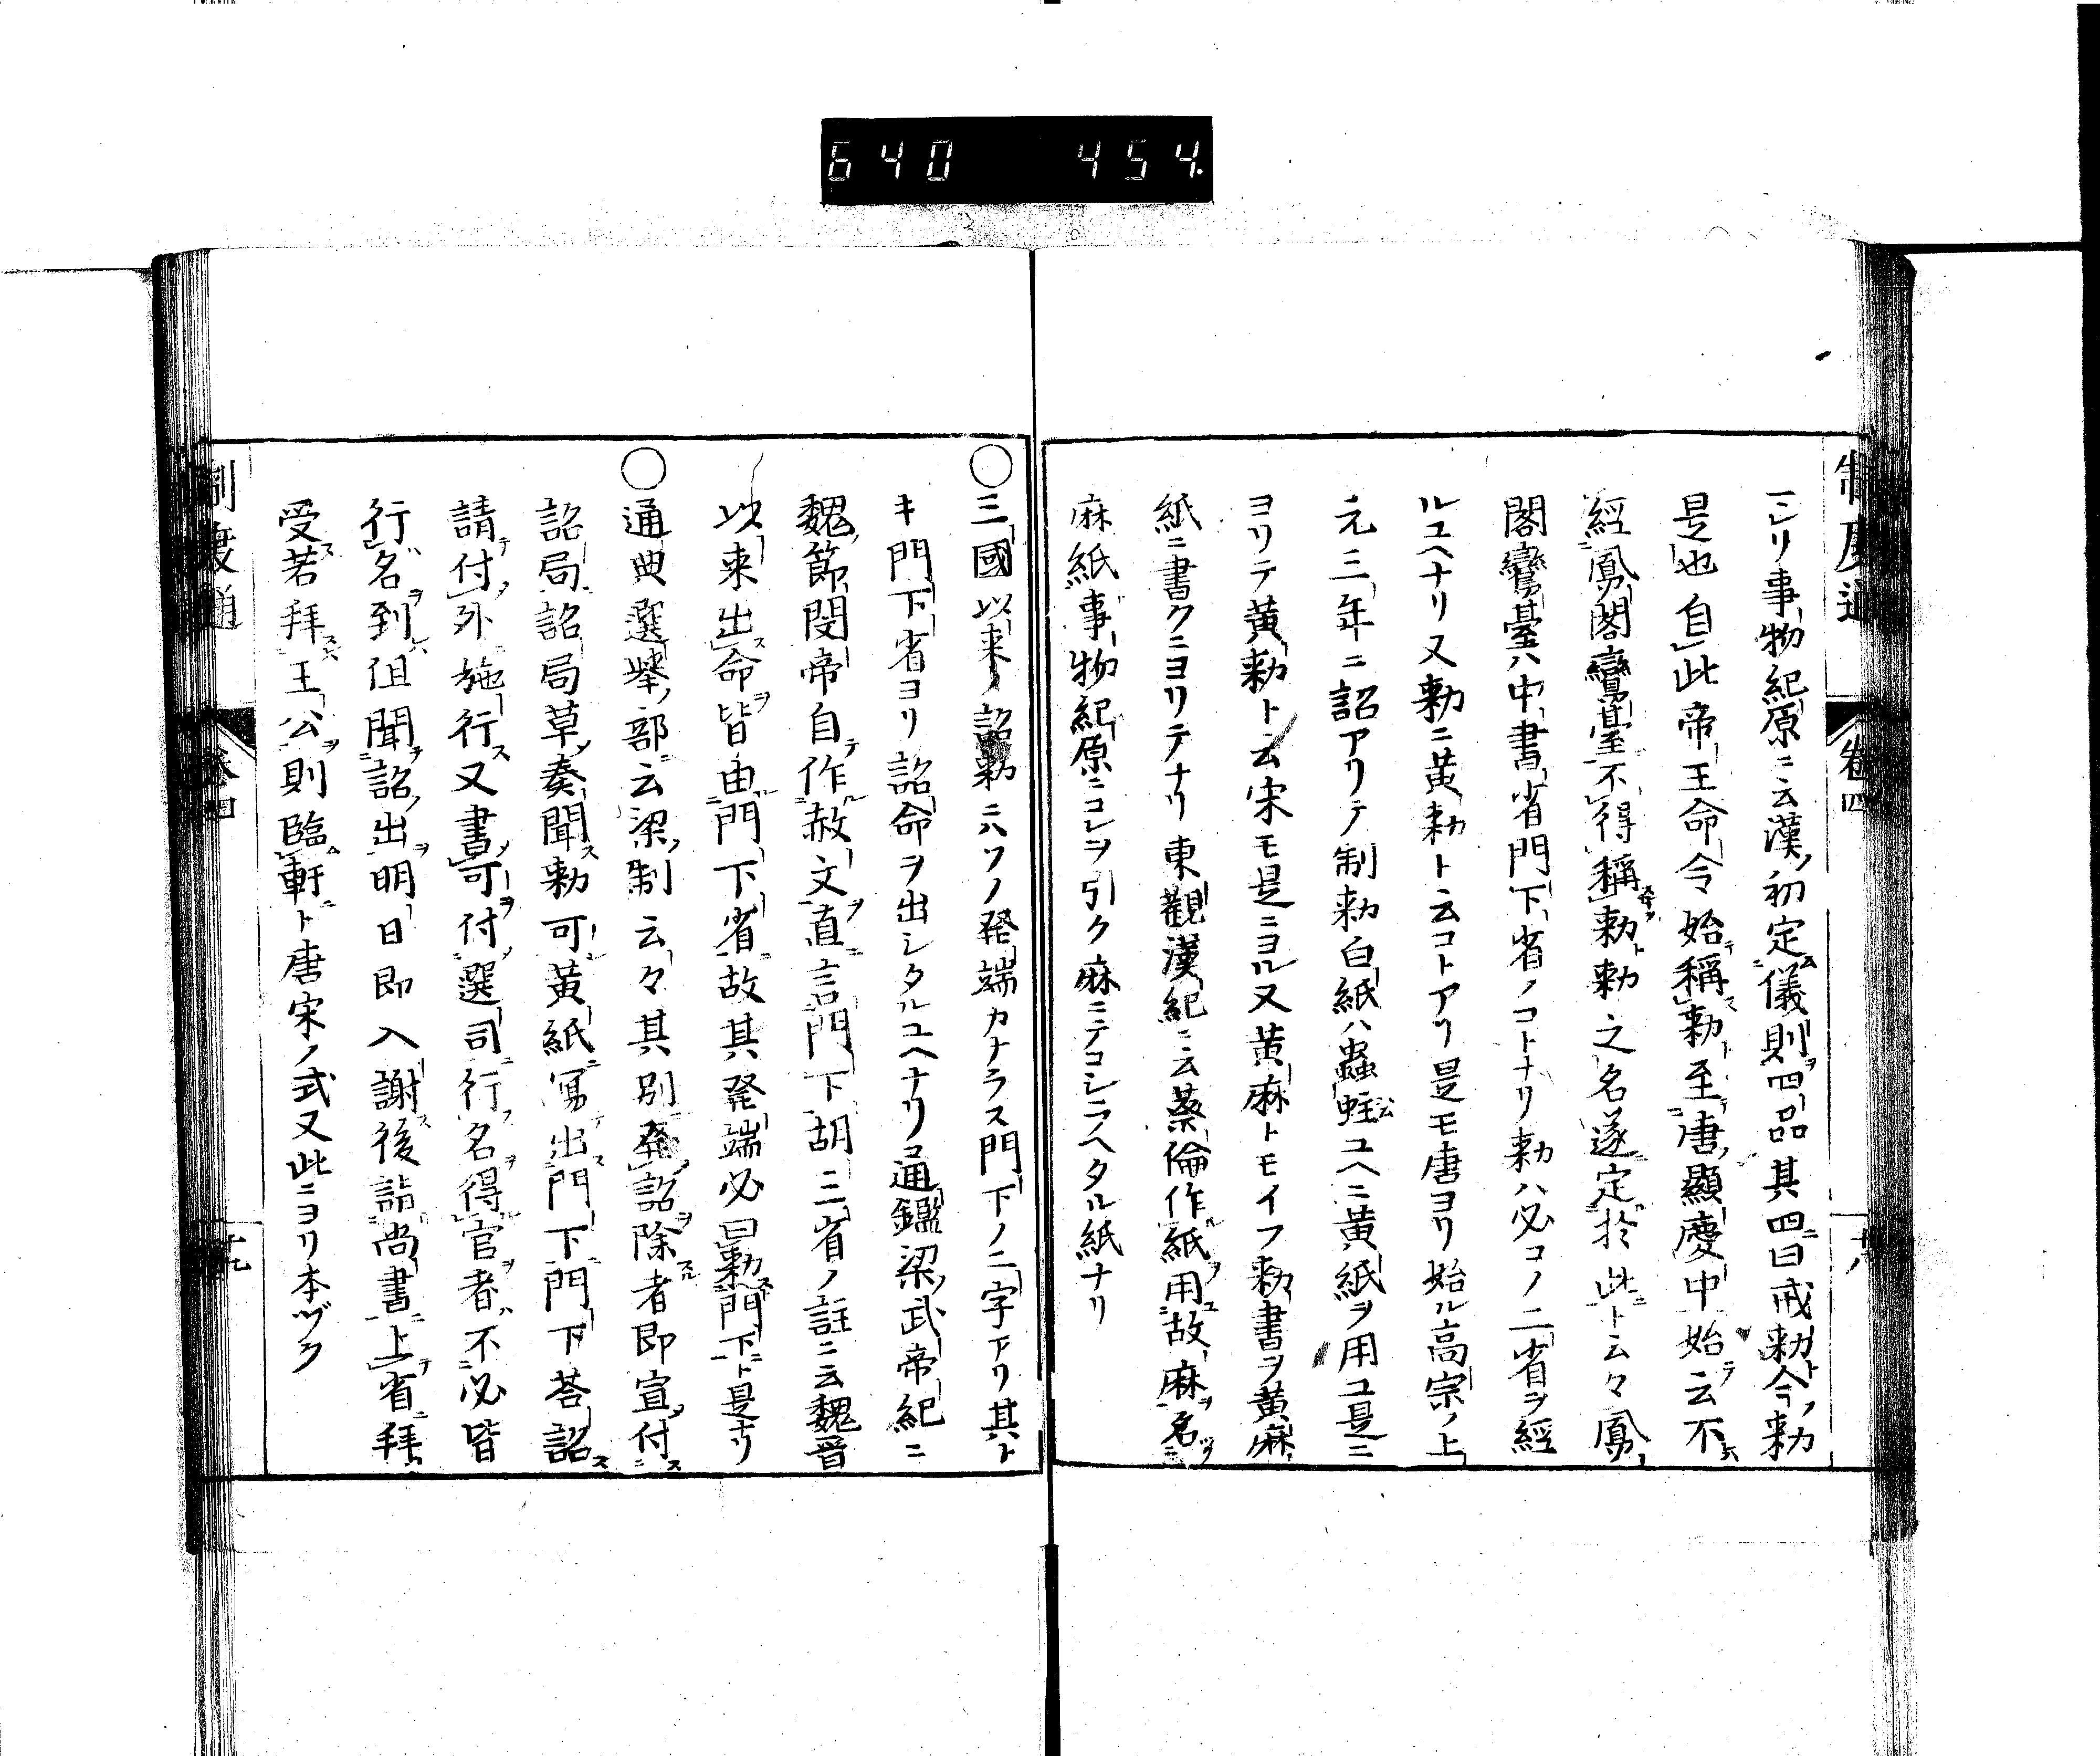 640 454.
制度通 卷四
ニレリ事物紀原ニ云漢ノ初定儀則四品其四曰戒勅今ノ勅
是也自此帝王命令始稱勅至唐顯慶中始云不
經鳳閣鸞臺不得稱勅勅之名遂定於此ト云々鳳
閣鸞臺ハ中書省門下省ノコトナリ勅ハ必コノ二省ヲ經
ルユヘナリ又勅ニ黃勅ト云コトアリ是モ唐ヨリ始ル高宗ノ上
元三年ニ詔アリテ制勅白紙ハ蟲蛀ユヘニ黃紙ヲ用ユ是ニ
ヨリテ黃勅ト云宋モ是ニヨル又黃麻トモイフ勅書ヲ黃麻
紙ニ書クニヨリテナリ東觀漢紀ニ云蔡倫作紙用故麻名
麻紙事物紀原ニコレヲ引ク麻ニテコシラヘタル紙ナリ
○三國以来ノ詔勅ニハソノ発端カナラス門下ノ二字アリ其ト
キ門下省ヨリ詔命ヲ出シタルユヘナリ通鑑梁武帝紀ニ
魏節閔帝自作赦文直言門下胡三省ノ註ニ云魏晉
以来出命皆由門下省故其発端必曰勅門下ト是ナリ
○通典選擧ノ部ニ云梁ノ制云々其別発詔除者即宣付
詔局詔局草奏聞勅可黃紙冩出門下門下荅詔
請付外施行又書可付選司行名得官者不必皆
行名到但聞詔出明日即入謝後詣尚書上省拜
受若拜王公則臨軒ト唐宋ノ式又此ニヨリ本ヅク
制度通 卷四